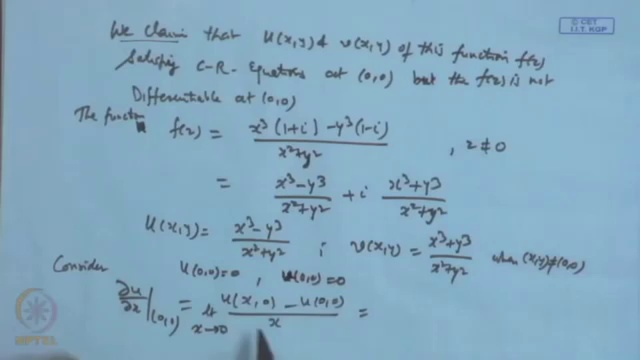 © CET
I.I.T. KGP
We Claim that u(x,y) & v(x,y) of this function f(z)
Satisfying C-R- Equations at (0,0) but the f(z) is not
Differentiable at (0,0)
The function f(z) = x³(1+i) - y³(1-i) / x²+y² , z ≠ 0
= x³-y³ / x²+y² + i x³+y³ / x²+y²
u(x,y) = x³-y³ / x²+y² ; v(x,y) = x³+y³ / x²+y² when (x,y)≠(0,0)
u(0,0)=0 , v(0,0)=0
Consider
∂u/∂x |(0,0) = lt x→0 u(x,0) - u(0,0) / x =